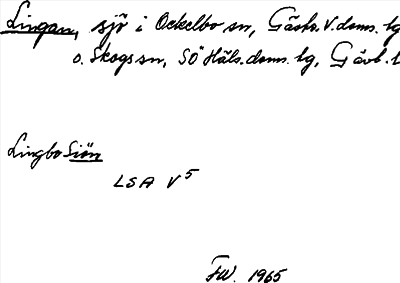 Lingan, sjö i Ockelbo sn, Gästr. V. doms. tg
o. Skogs sn, SÖ Häls. doms. tg, Gävl. l
Lingbo Siön
LSA V5
FW. 1965